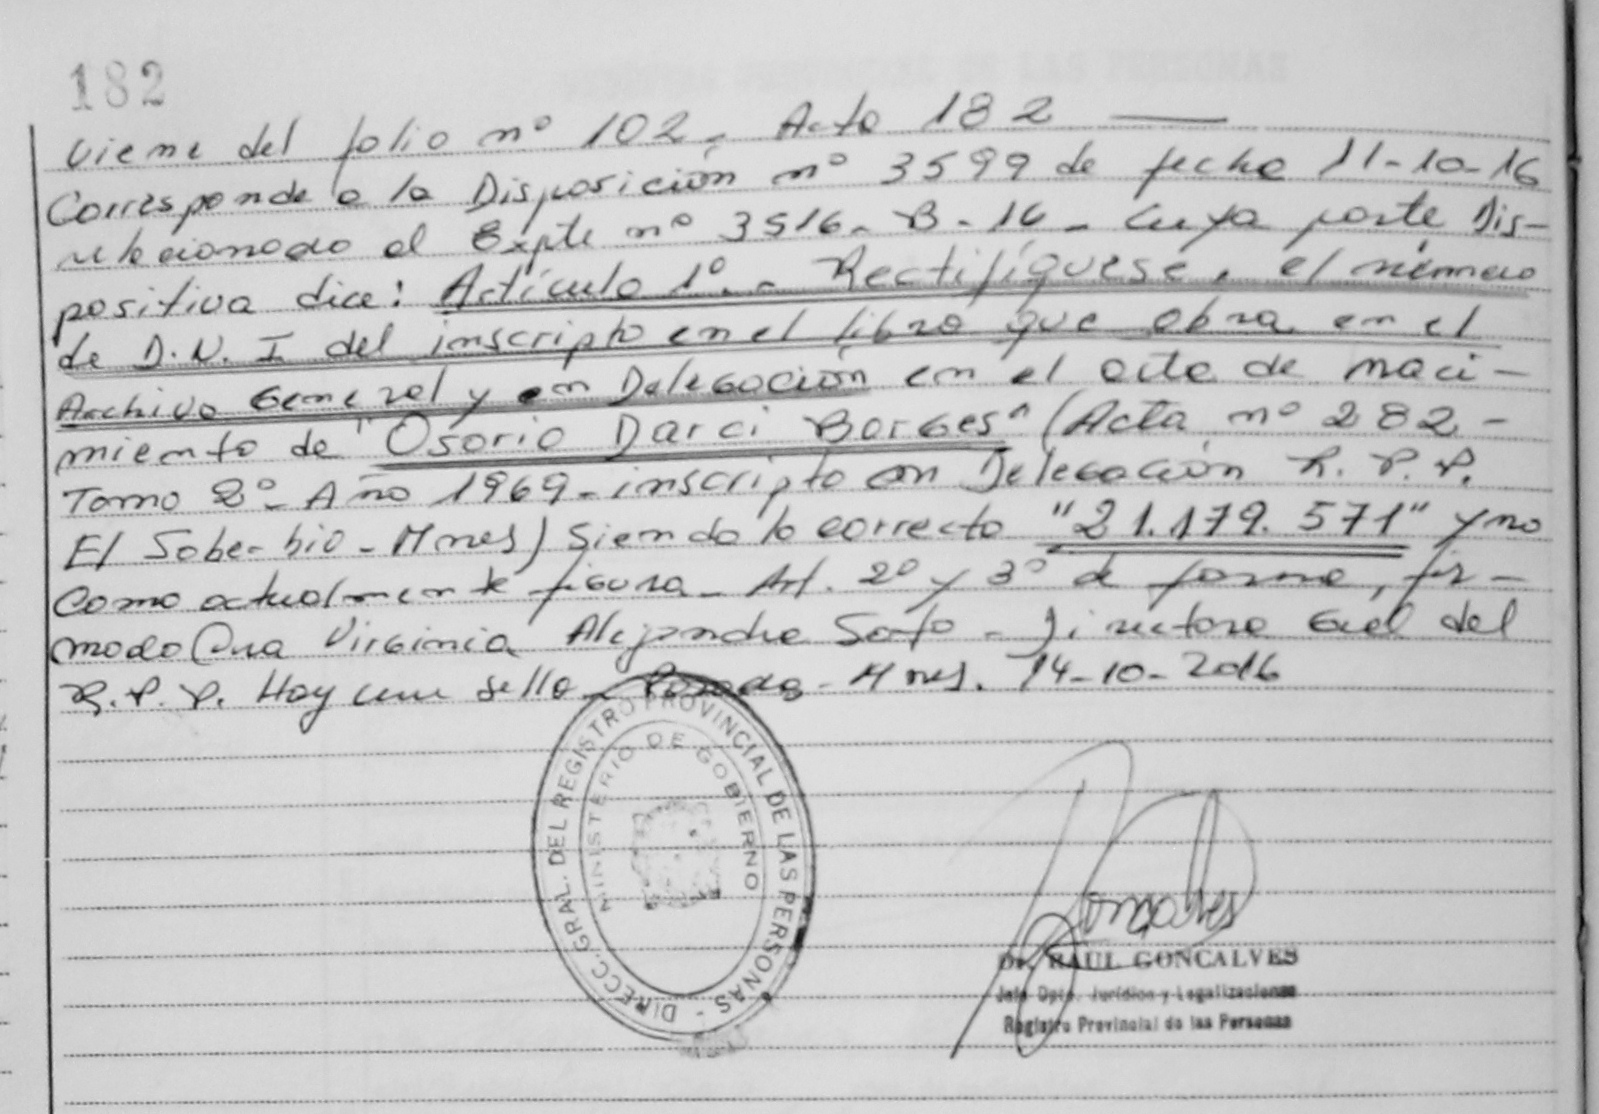 182
Viene del folio nº 102. Acta 182
Corresponde a la Disposición nº 3599 de fecha 11-10-16
relacionado al Expte nº 3516-B-16- Cuya parte Dis-
positiva dice: Artículo 1º.- Rectifíquese, el número
de D.N.I del inscripto en el libro que obra en el
Archivo General y en Delegación en el acta de naci-
miento de "Osorio Darci Borges" (Acta nº 282-
Tomo 2º- Año 1969-inscripto en Delegación R.P.P.
El Soberbio-Mnes) Siendo lo correcto "21.179.571" y no
como actualmente figura- Art. 2º y 3º de forma, fir-
mado Ana Virginia Alejandra Soto - Directora Gral del
R.P.P. Hay un sello- Posadas- Mnes. 14-10-2016
DIRECC. GRAL. DEL REGISTRO PROVINCIAL DE LAS PERSONAS -
MINISTERIO DE GOBIERNO
Goncalves
Dr. RAUL GONCALVES
Jefe Dpto. Jurídico y Legalizaciones
Registro Provincial de las Personas